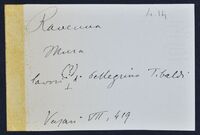 4.14
Ravenna
Mura
lavori (?) di Pellegrino Tibaldi
Vasari VII, 419